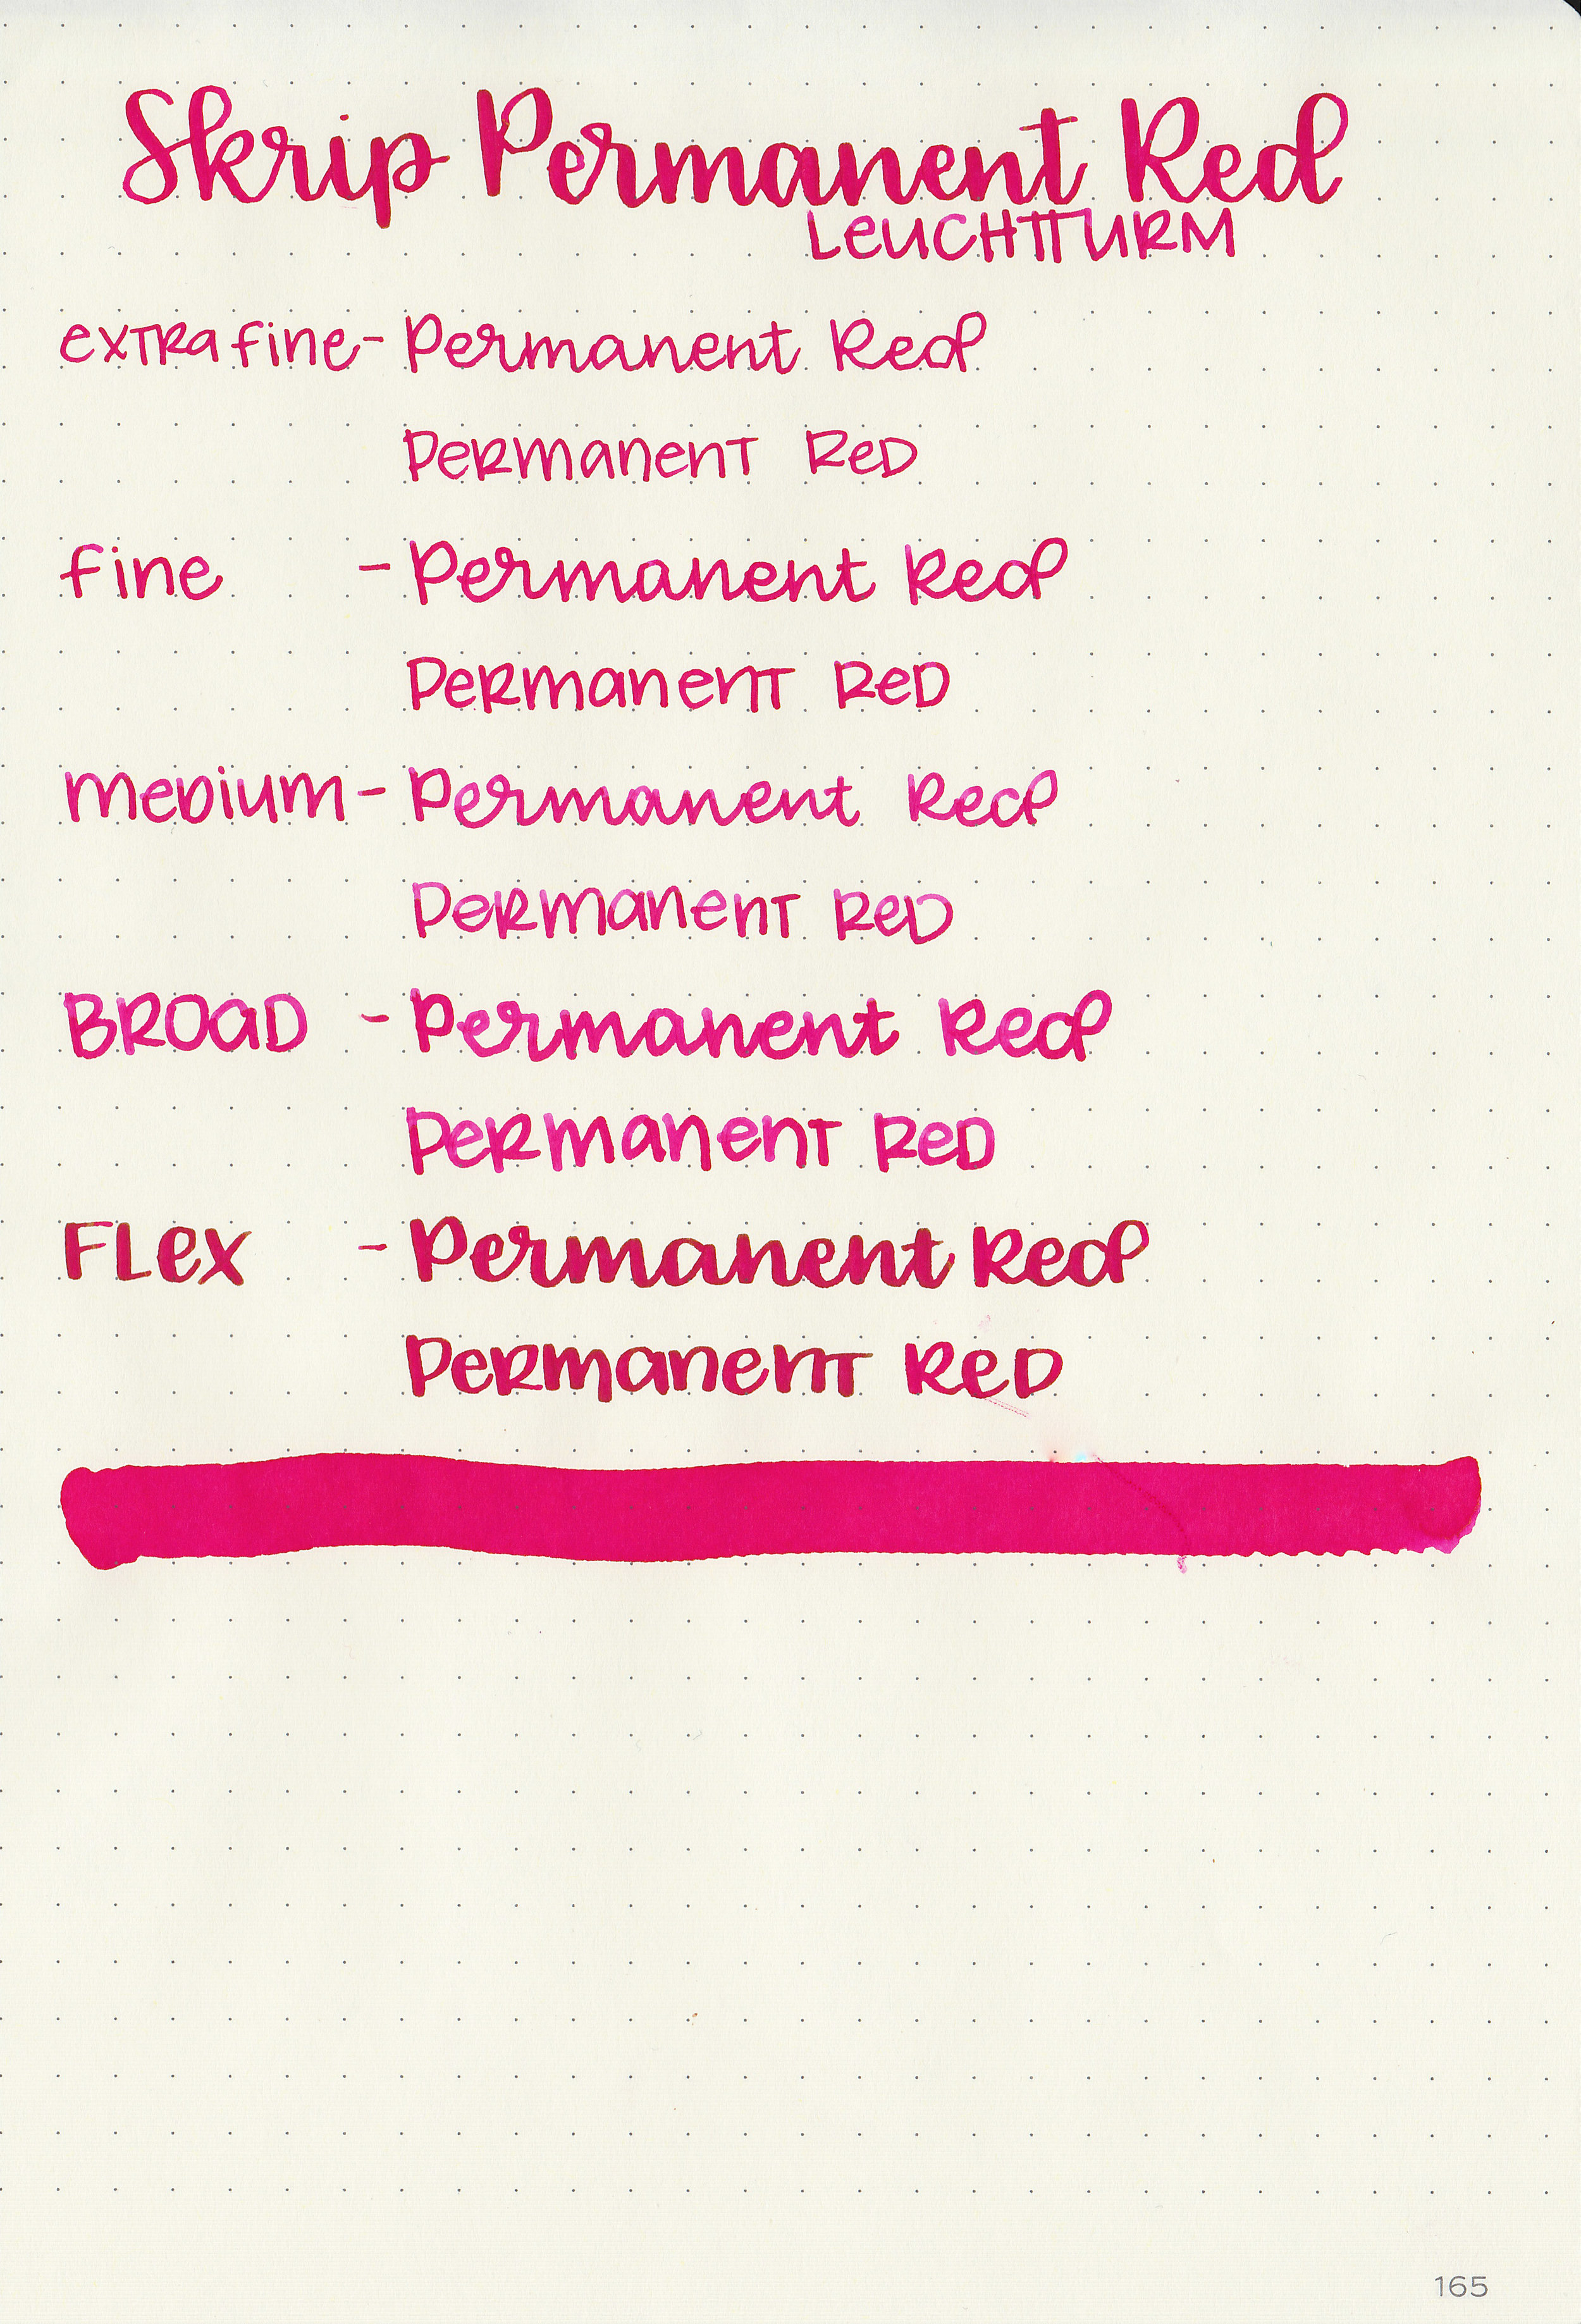 Skrip Permanent Red
LEUCHTTURM
extra fine - Permanent Red
Permanent Red
fine - Permanent Red
Permanent Red
medium - Permanent Red
Permanent Red
BROAD - Permanent Red
Permanent Red
FLex - Permanent Red
Permanent Red
165